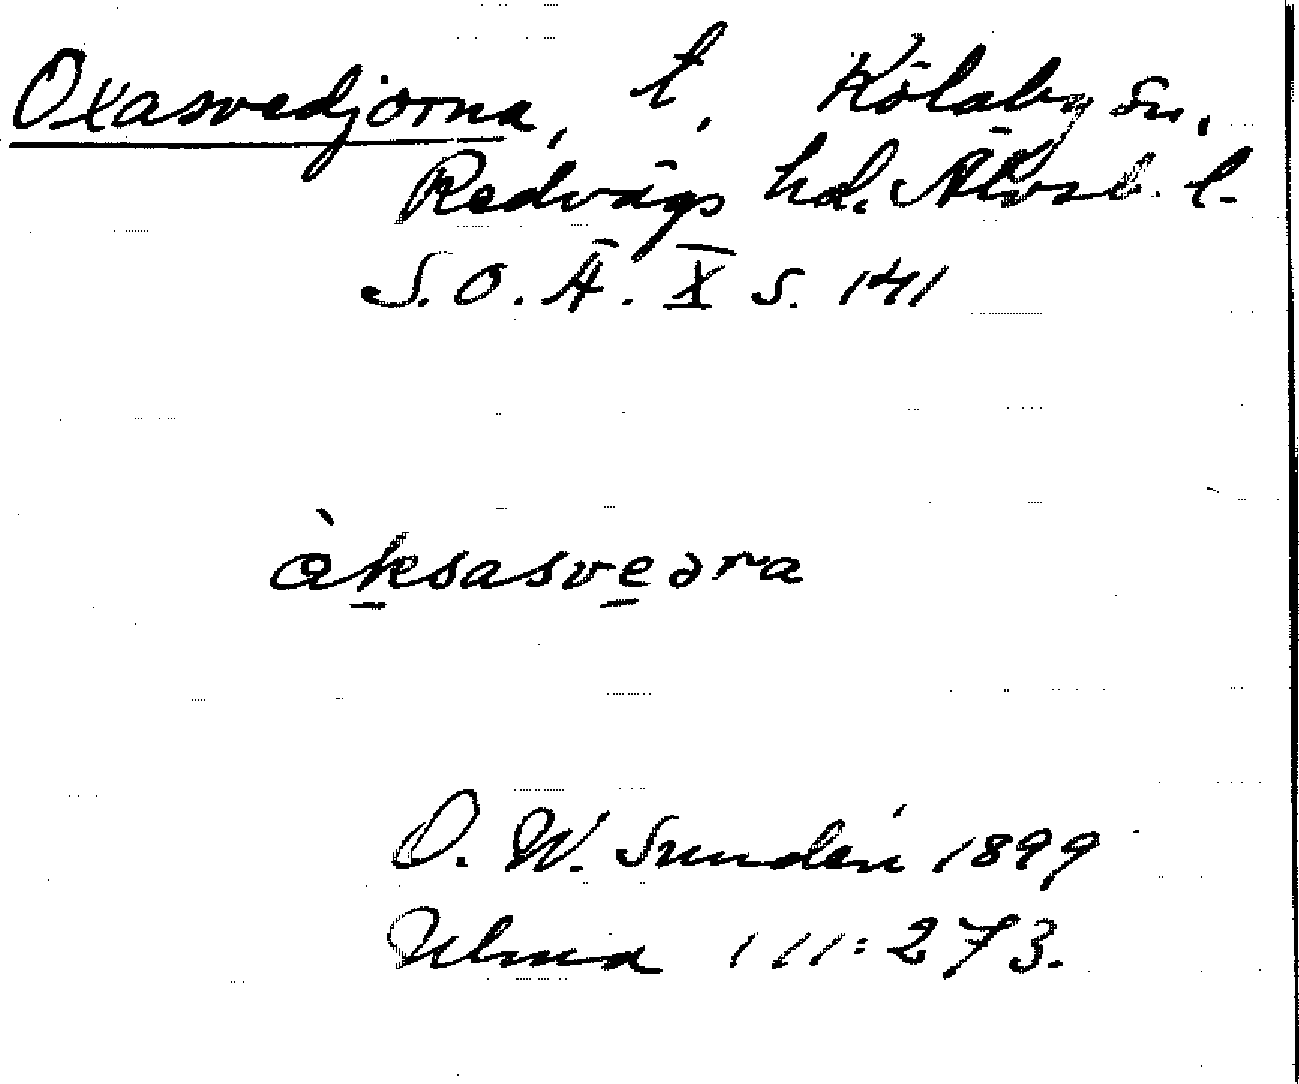 Oxasvedjorna, t, Kölaby sn,
Redvägs hd. Älvsb. l.
S.O.Ä. X s. 141
àksasveəra
O. W. Sundén 1899
Ulma 111:273.